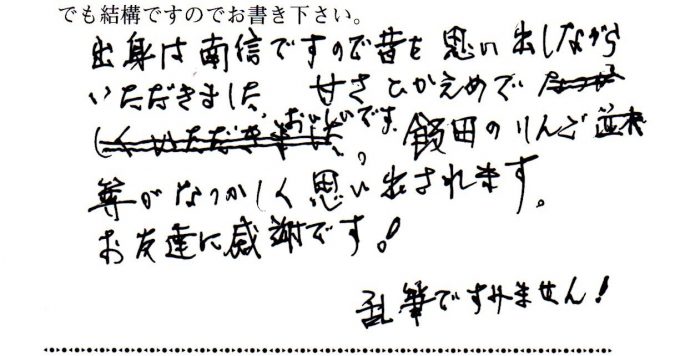 でも結構ですのでお書き下さい。
出身は南信ですので昔を思い出しながら
いただきました 甘さひかえめで なつか
しくいただきました。おいしいです。飯田のりんご並木
等がなつかしく思い出されます。
お友達に感謝です!
乱筆ですみません!